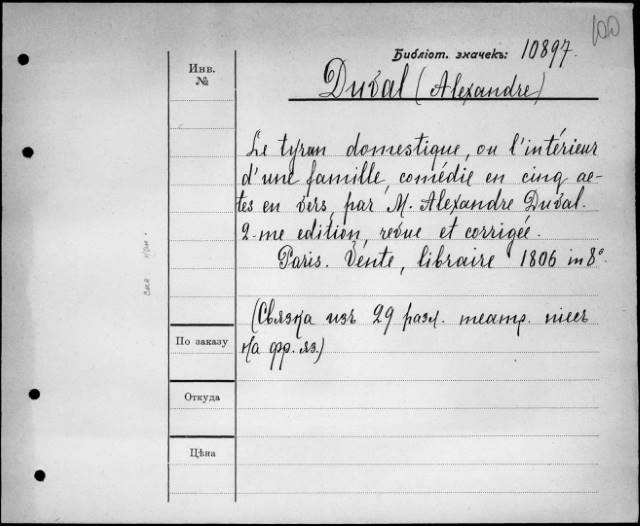 100
Библіот. значекъ: 10897.
Инв.
№
Duval (Alexandre)
Le tyran domestique, ou l'intérieur
d'une famille, comédie en cinq ac-
tes en vers, par M. Alexandre Duval.
2-me edition, revue et corrigée.
Paris. Vente, libraire 1806 in 8°
(Связка изъ 29 разл. театр. пiесъ
на фр. яз.)
По заказу
Откуда
Цѣна